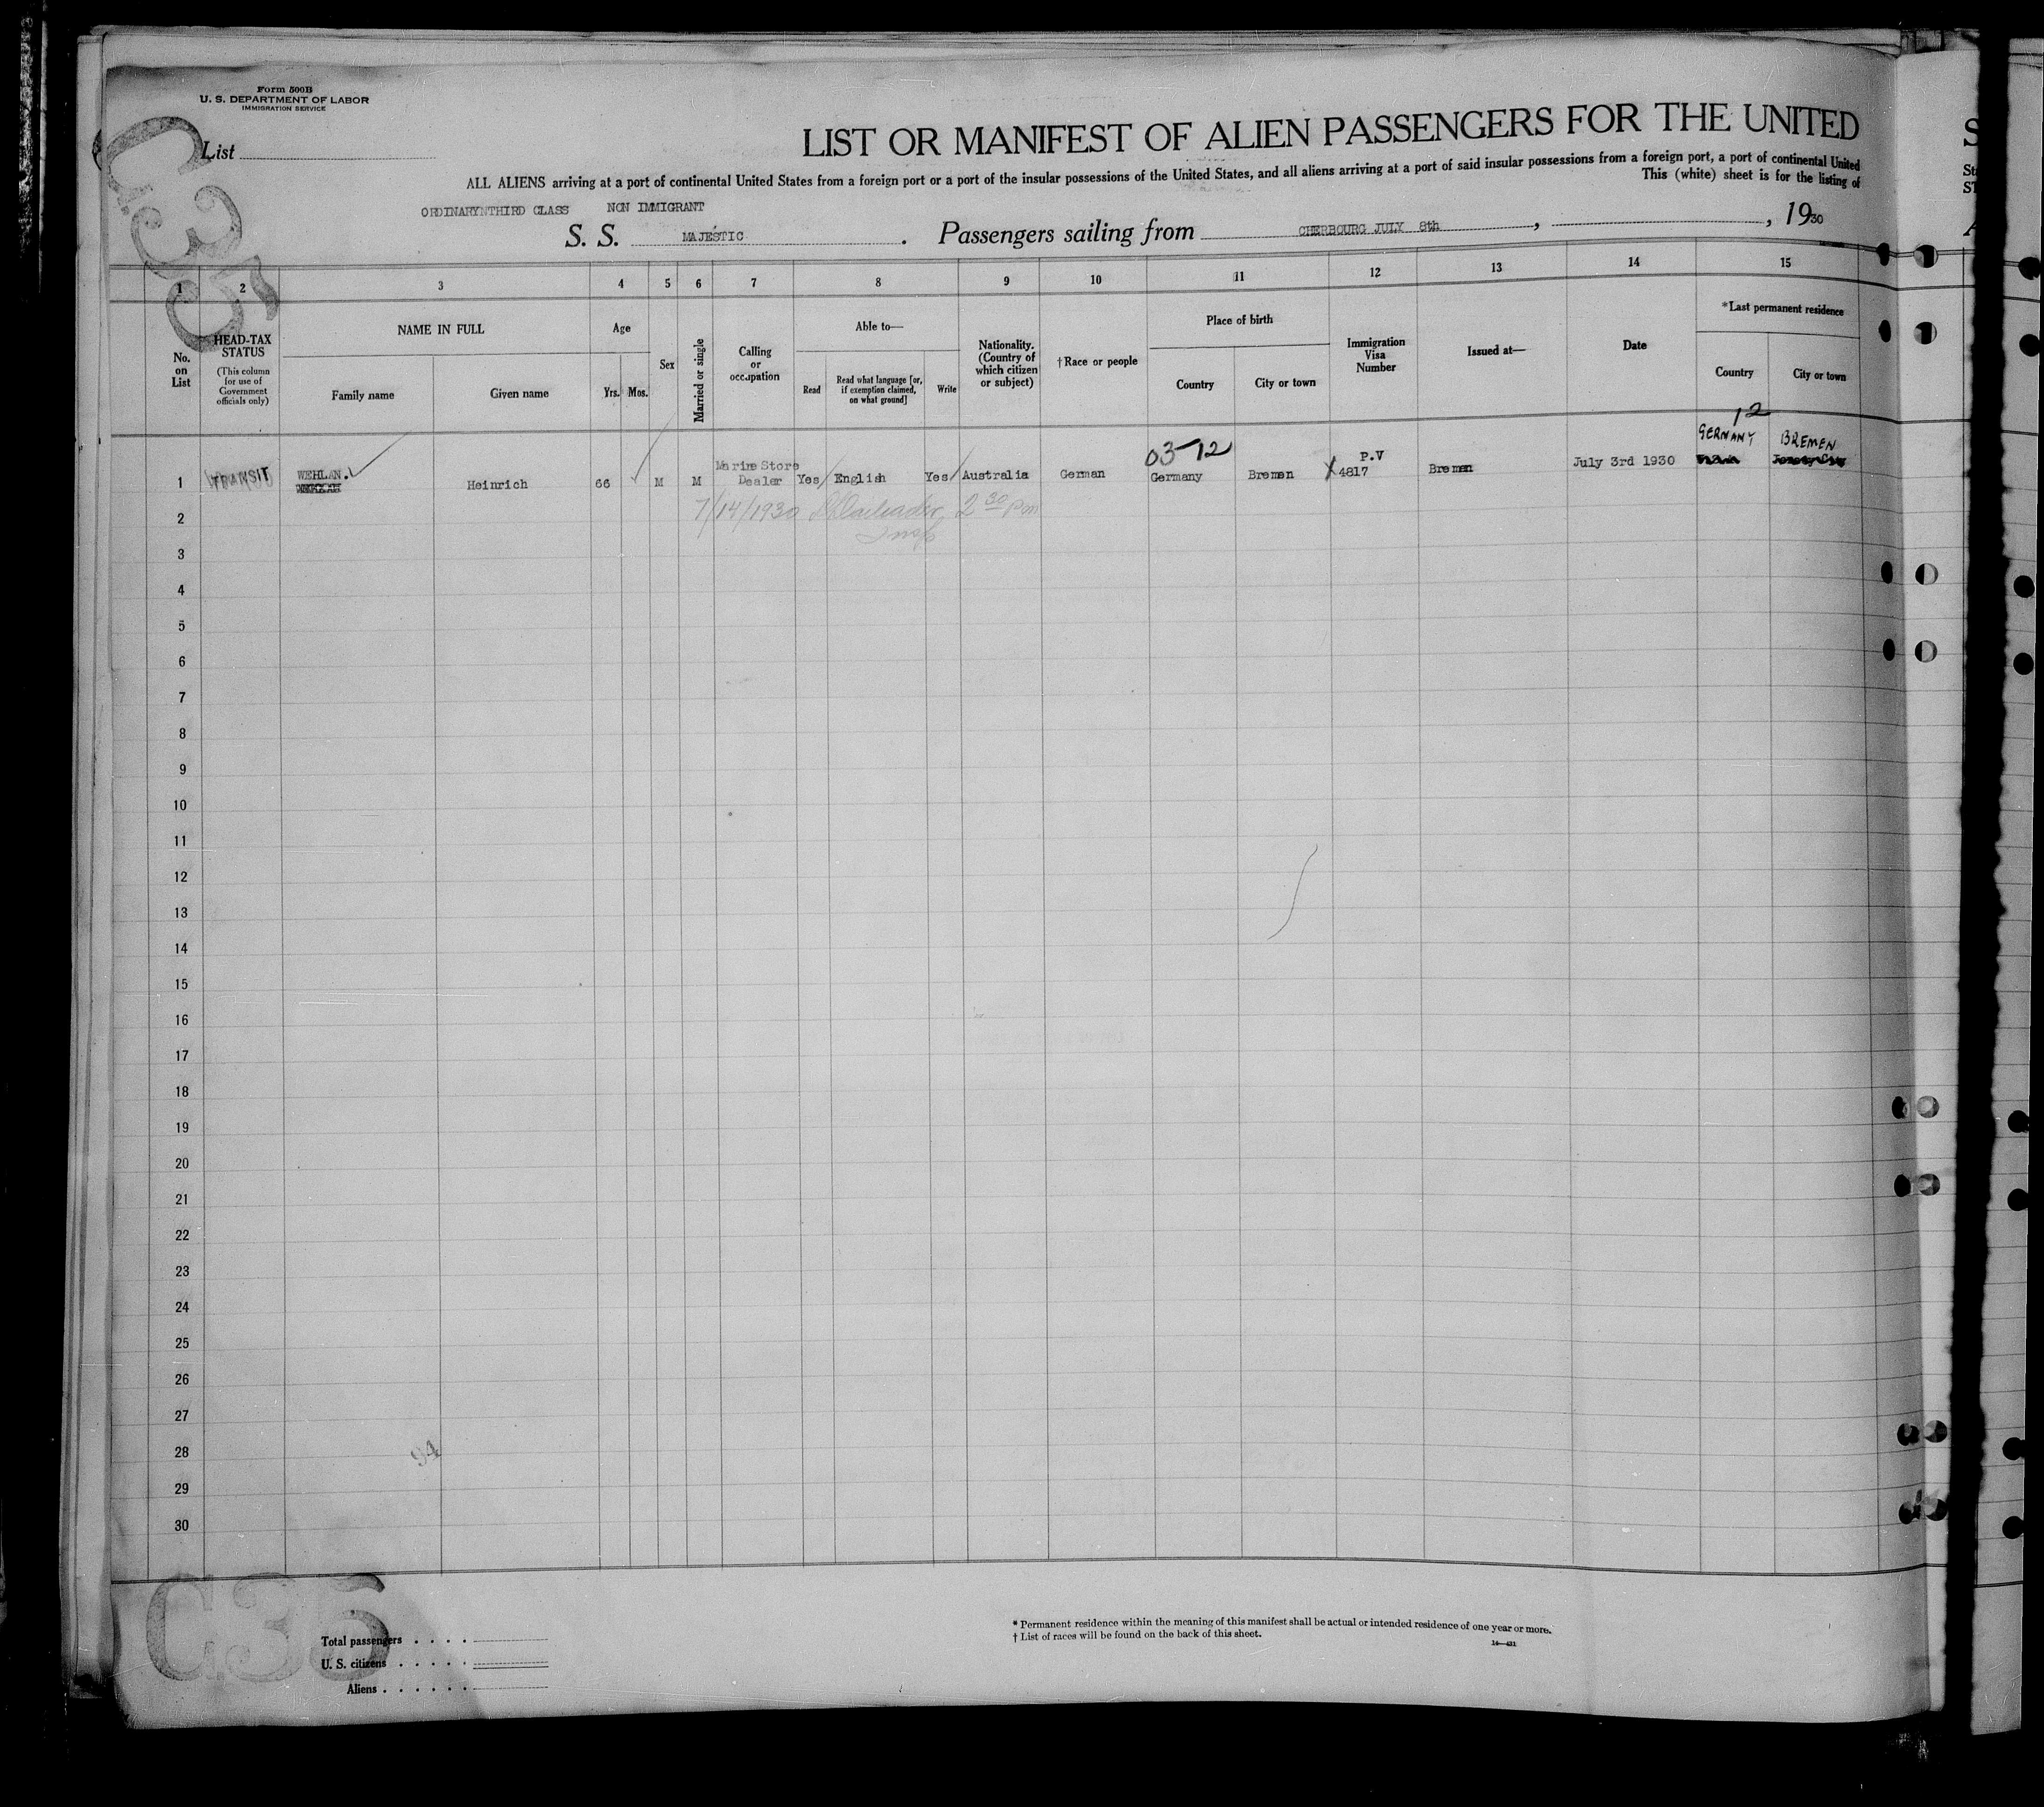 Form 500B
U. S. DEPARTMENT OF LABOR
IMMIGRATION SERVICE
List
C35
LIST OR MANIFEST OF ALIEN PASSENGERS FOR THE UNITED
ALL ALIENS arriving at a port of continental United States from a foreign port or a port of the insular possessions of the United States, and all aliens arriving at a port of said insular possessions from a foreign port, a port of continental United
This (white) sheet is for the listing of
ORDINARYNTHIRD CLASS NON IMMIGRANT
S. S. MAJESTIC . Passengers sailing from CHERBOURG JULY 8th , , 1930
1 2 3 4 5 6 7 8 9 10 11 12 13 14 15
No. on List
HEAD-TAX STATUS
(This column for use of Government officials only)
NAME IN FULL
Family name Given name
Age
Yrs. Mos.
Sex
Married or single
Calling or occupation
Able to—
Read Read what language [or, if exemption claimed, on what ground] Write
Nationality. (Country of which citizen or subject)
†Race or people
Place of birth
Country City or town
Immigration Visa Number
Issued at—
Date
*Last permanent residence
Country City or town
12
GERMANY BREMEN
03-12
P.V
1 TRANSIT WEHLAN. Heinrich 66 M M Marine Store Dealer Yes English Yes Australia German Germany Bremen 4817 Bremen July 3rd 1930 Jersey City
2 7/14/1930 2 30 pm
Insp
3
4
5
6
7
8
9
10
11
12
13
14
15
16
17
18
19
20
21
22
23
24
25
26
27
28 94
29
30
C35
Total passengers . . . .
U. S. citizens . . . . .
Aliens . . . . . .
* Permanent residence within the meaning of this manifest shall be actual or intended residence of one year or more.
† List of races will be found on the back of this sheet.
14—431